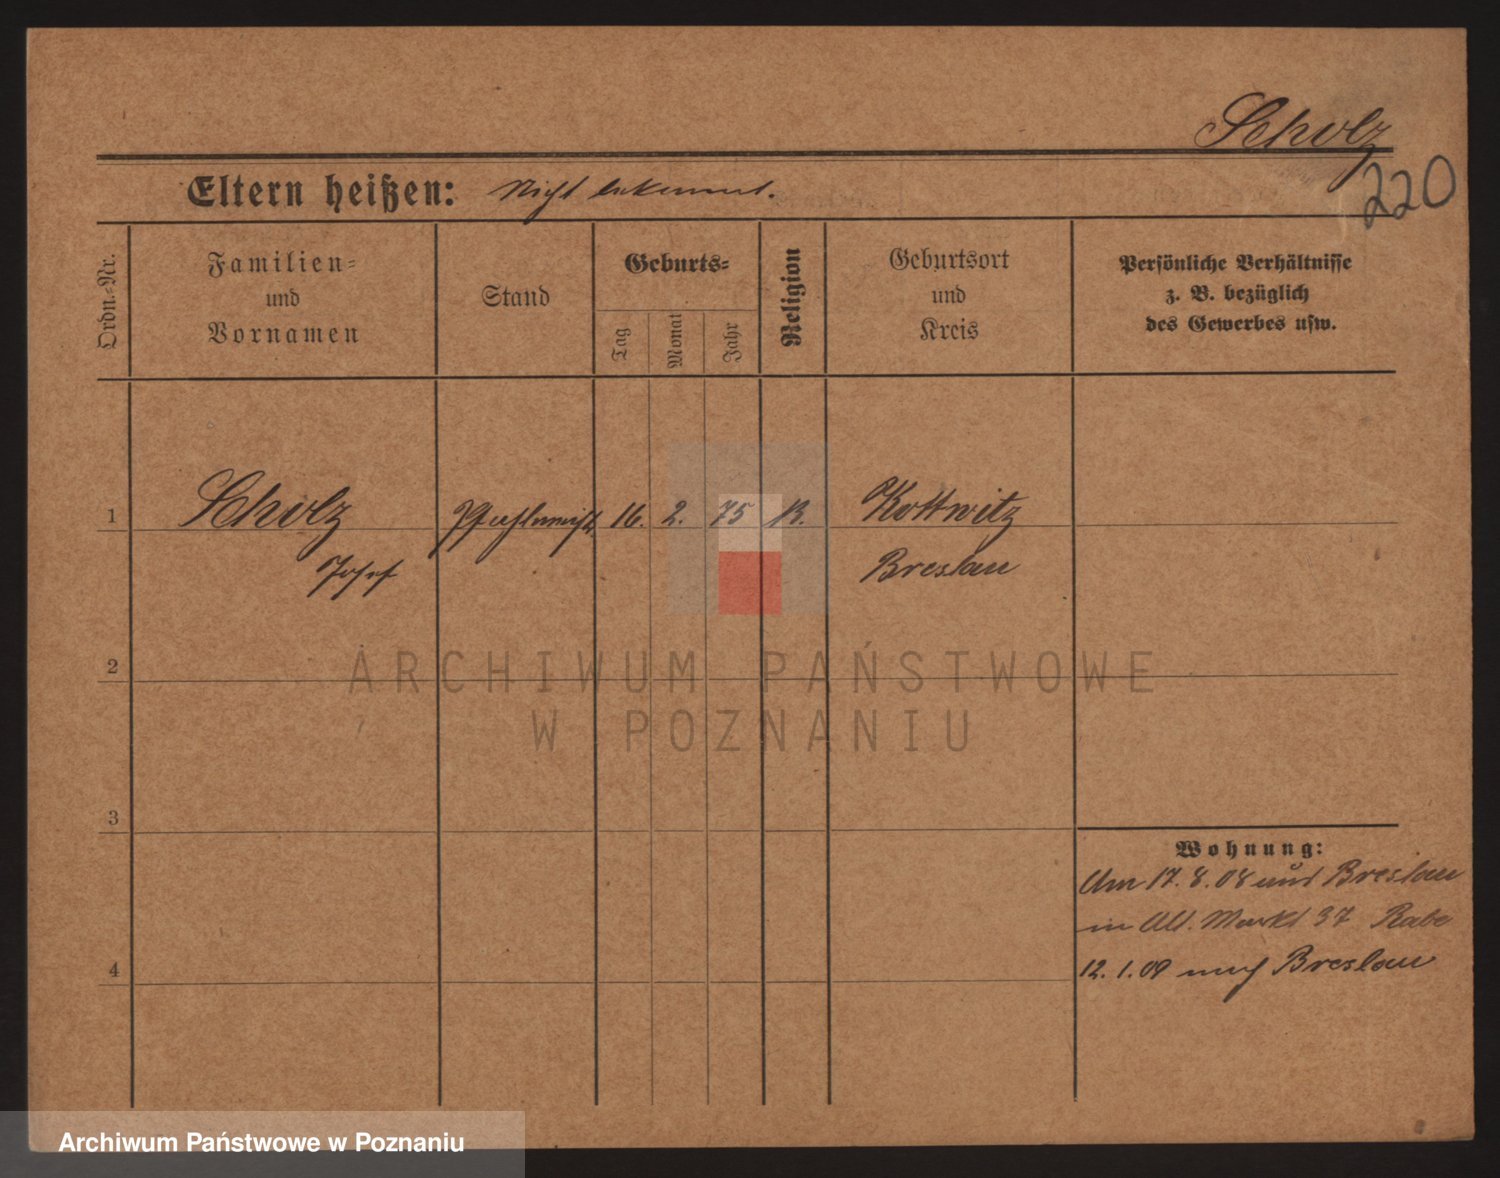 Scholz
220
Eltern heißen: Nicht bekannt.
Ordn.-Nr.
Familien-
und
Vornamen
Stand
Geburts-
Tag
Monat
Jahr
Religion
Geburtsort
und
Kreis
Persönliche Verhältnisse
z. B. bezüglich
des Gewerbes usw.
1 Scholz 16. 2. 75 K. Kottwitz
Josef Breslau
2
ARCHIWUM PAŃSTWOWE
W POZNANIU
3
Wohnung:
Am 17. 8. 08 aus Breslau
in Alt. Markt 37 Rabe
4
12. 1. 09 nach Breslau
Archiwum Państwowe w Poznaniu